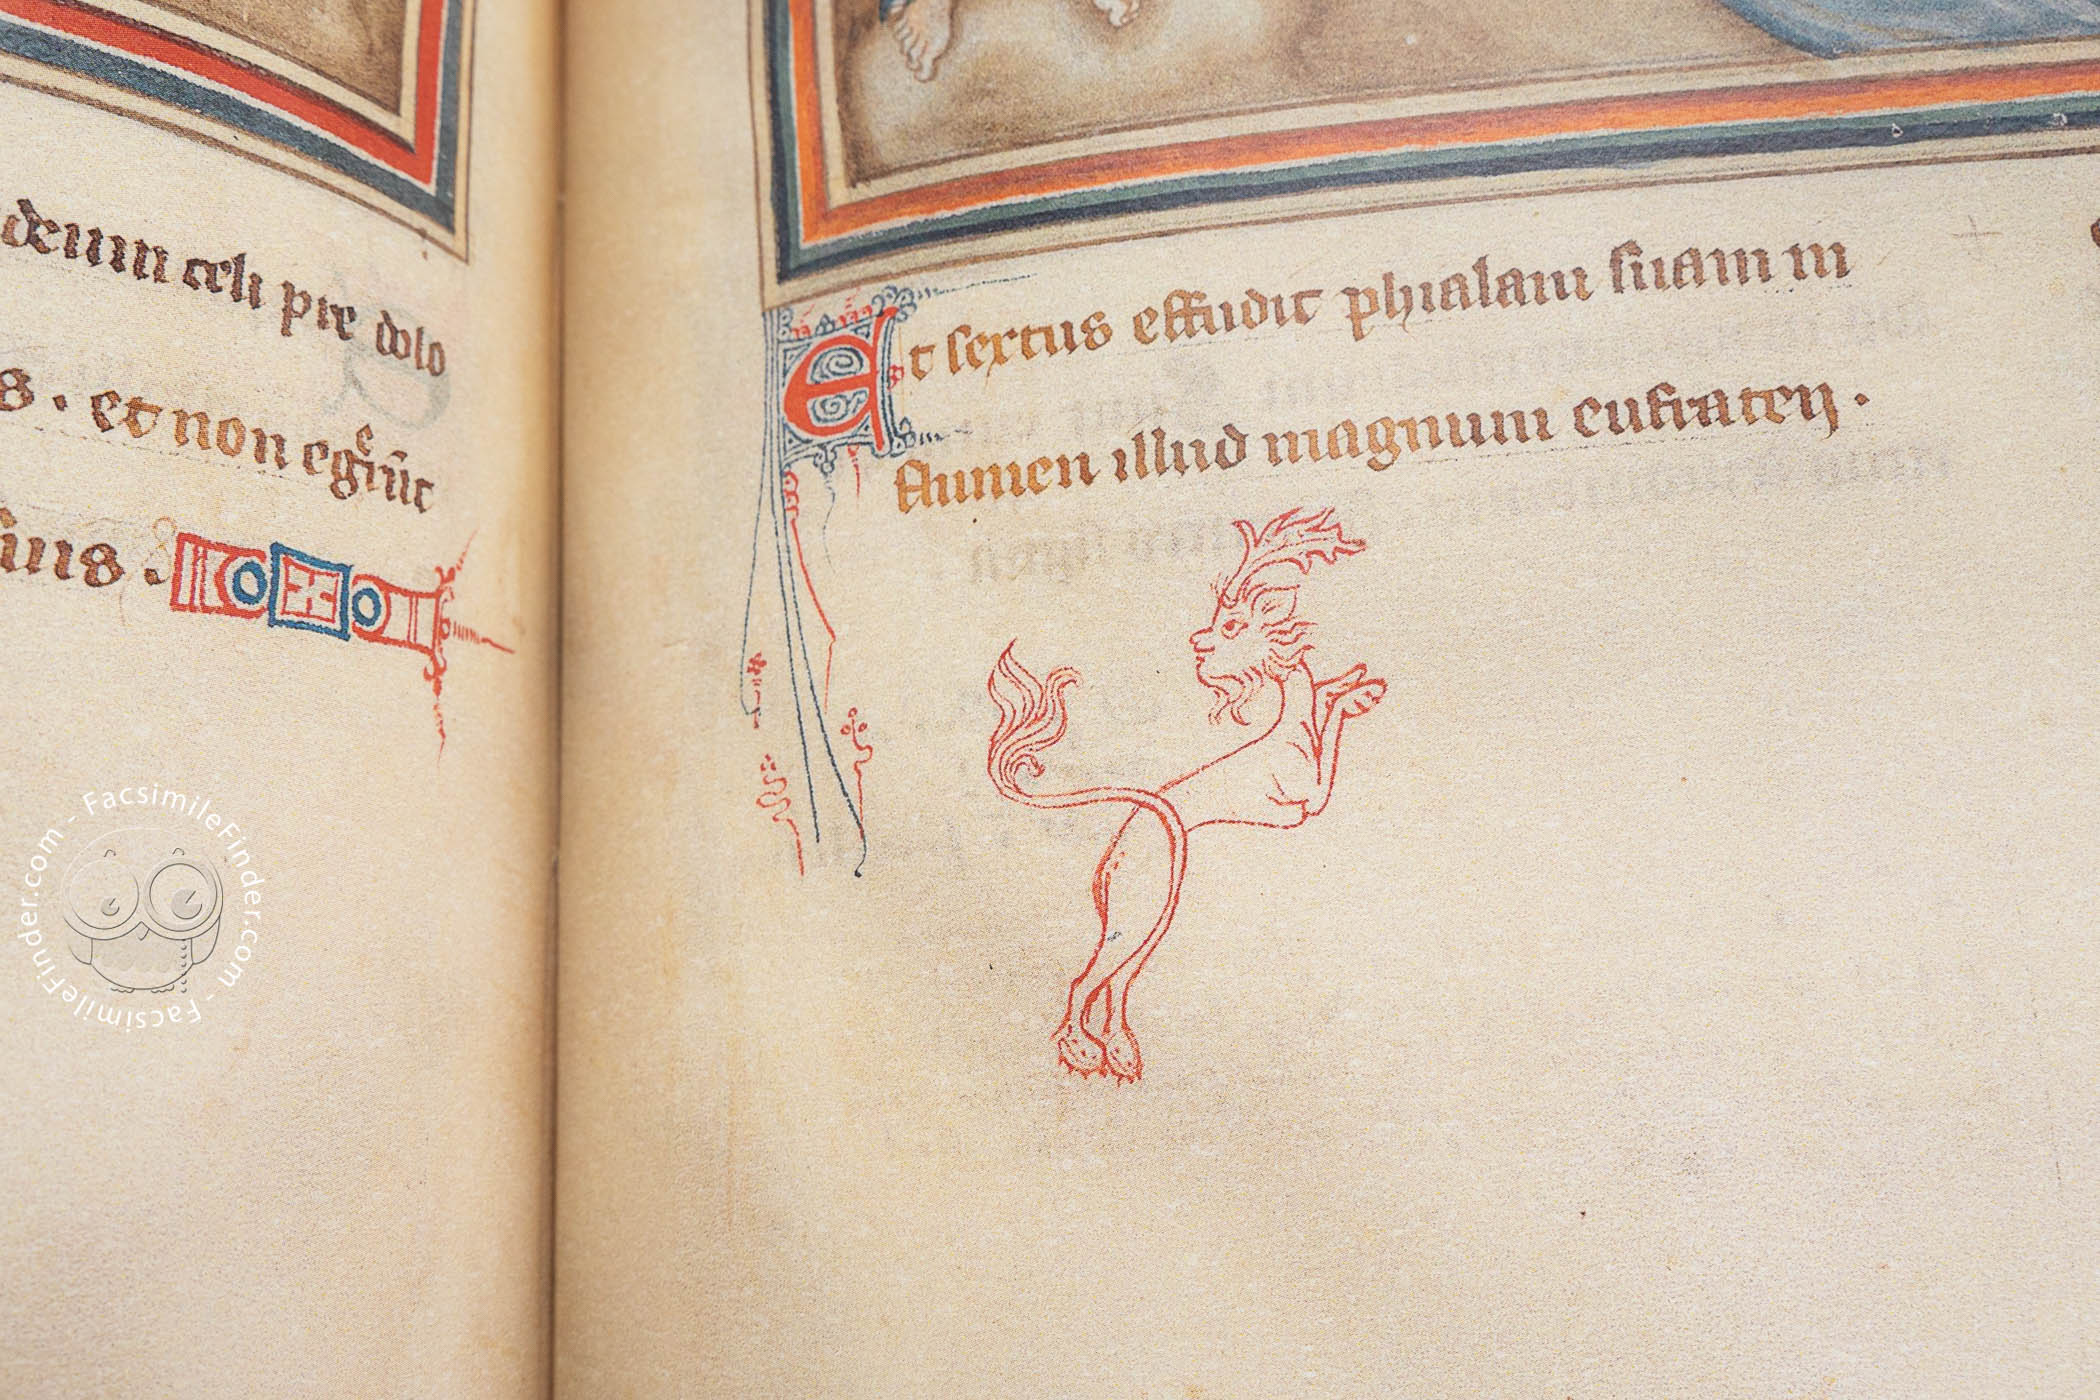 deum celi pre dolo
s. et non egeru͂t
suis.
Et sextus effudit phialam suam in
flumen illud magnum eufraten.
FacsimileFinder.com - FacsimileFinder.com -